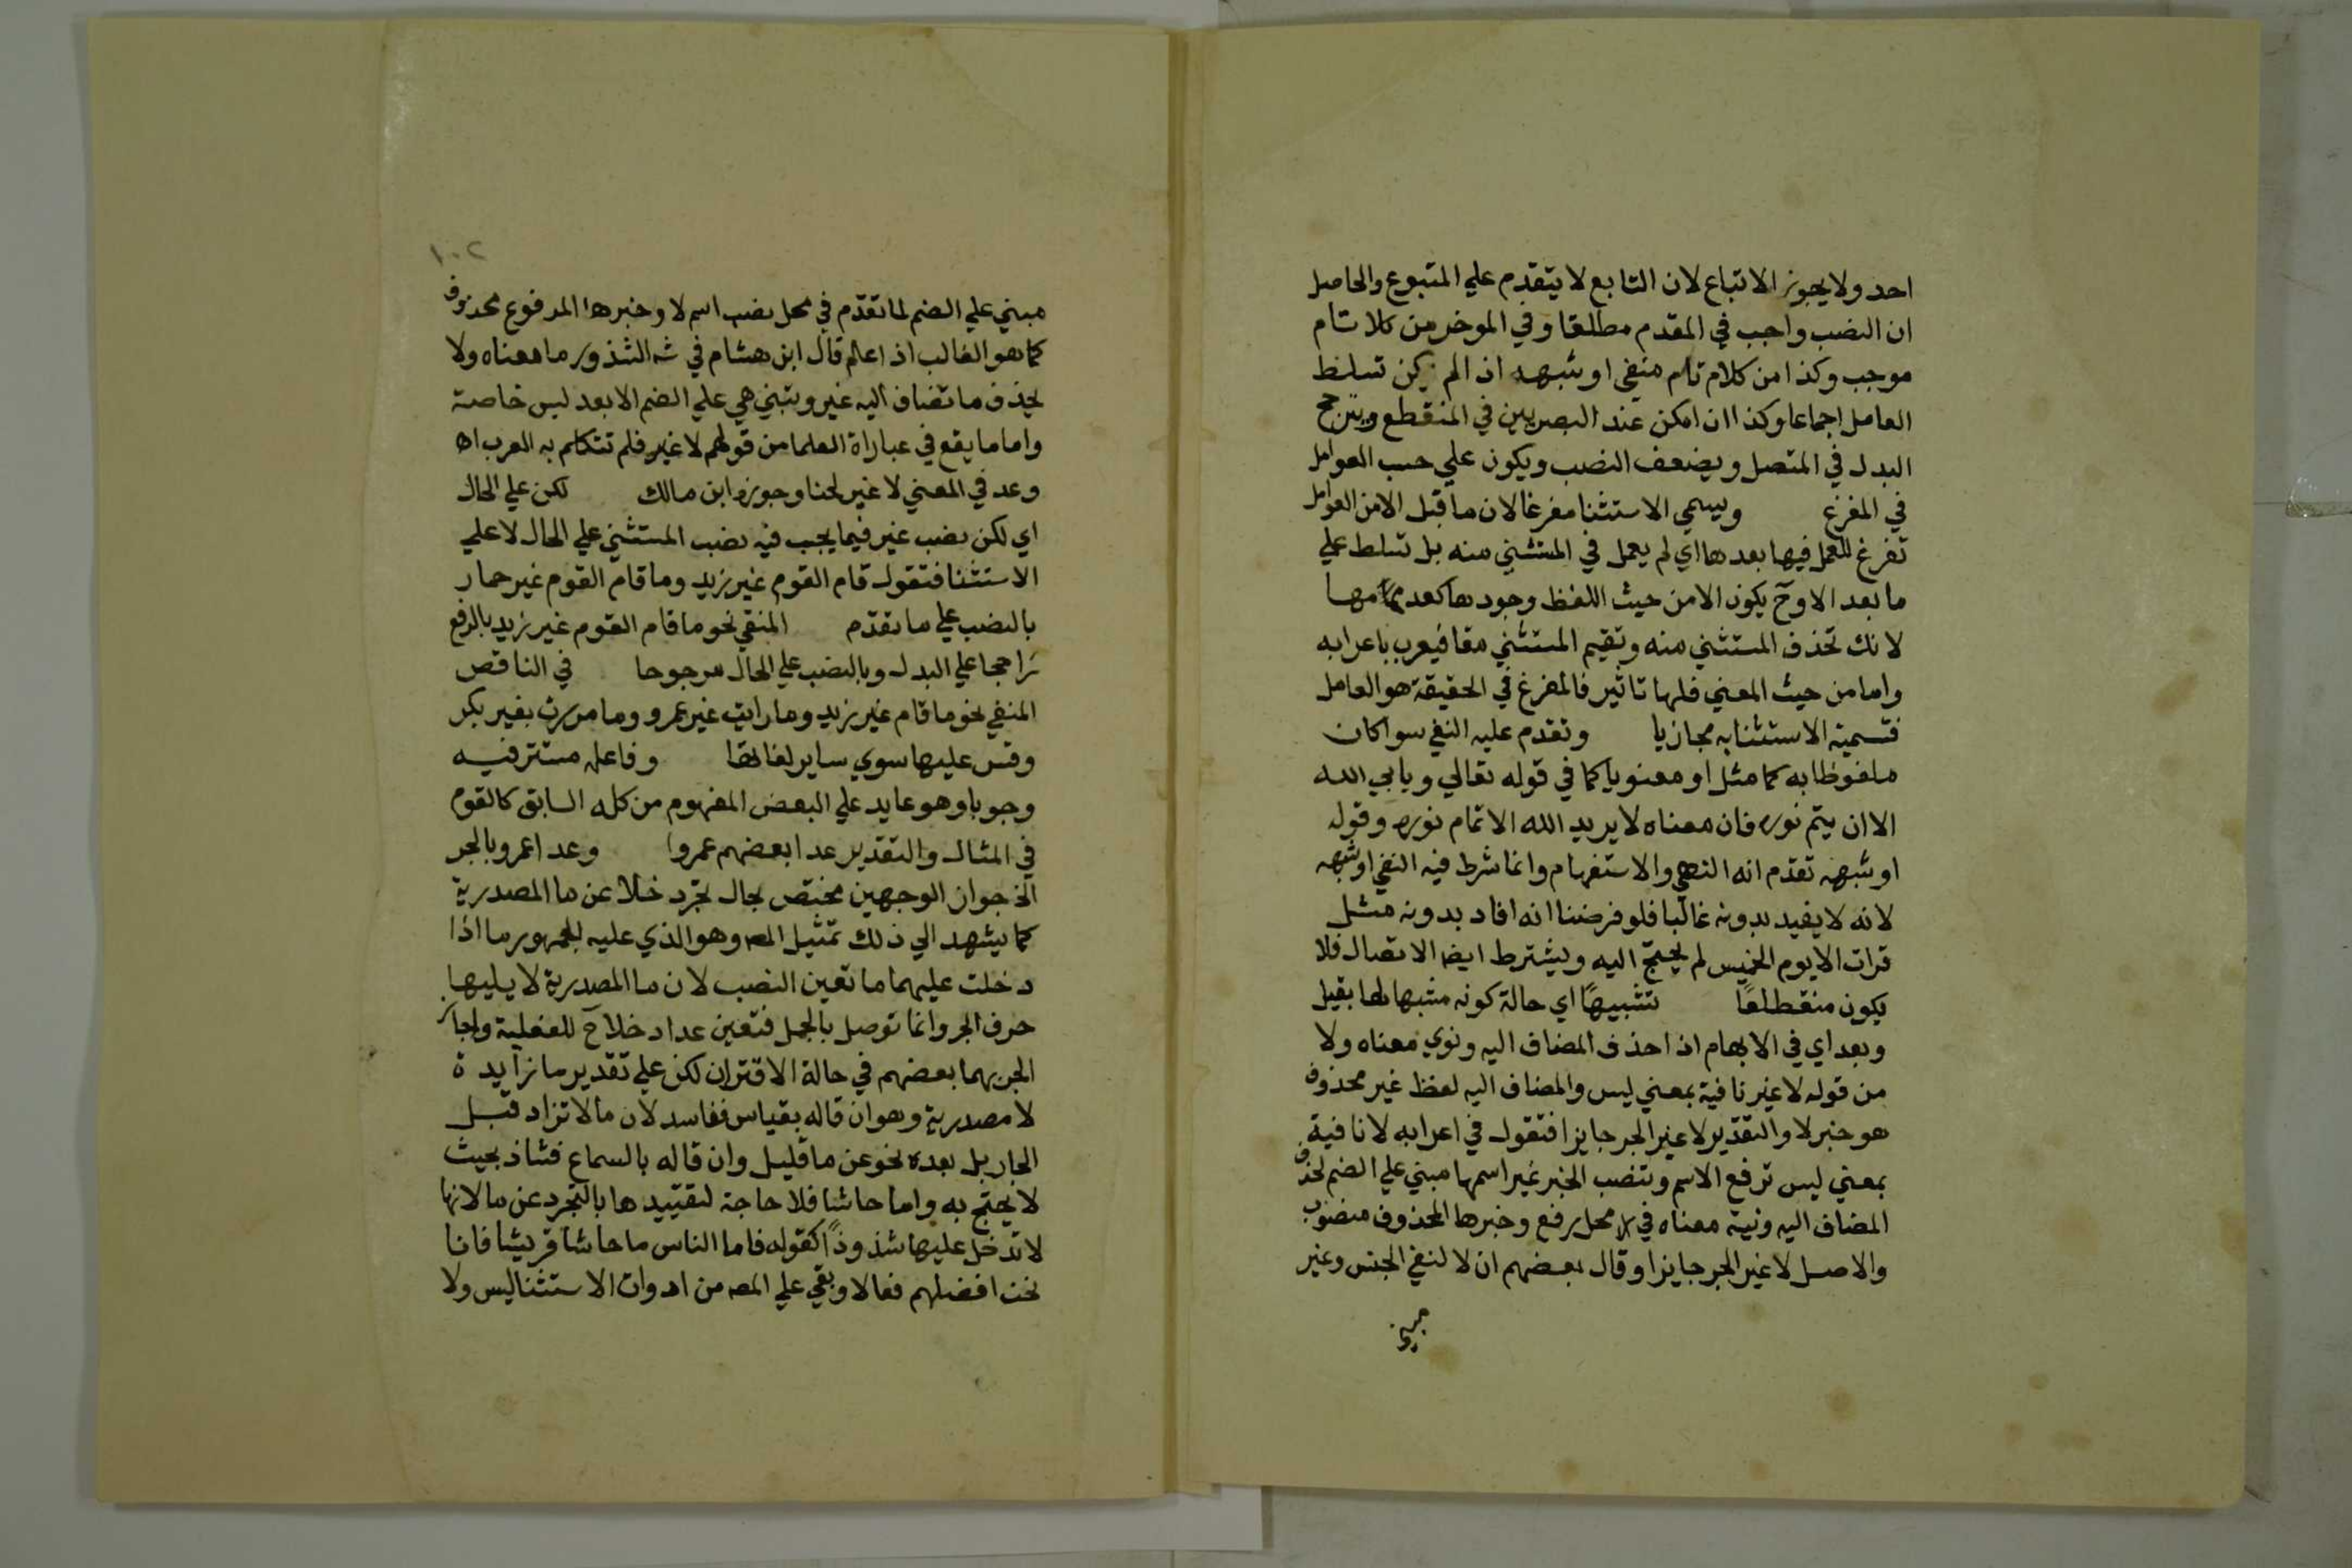 احد ولا يجوز الاتباع لان التابع لا يتقدم علي المتبوع والحاصل
ان النصب واجب في المقدم مطلقا وفي الموخر من كلام تام
موجب وكذا من كلام تام منفي او شبهه اذا لم يكن تسلط
العامل اجماعا وكذا ان امكن عند البصريين في المنقطع ويترجح
البدل في المتصل ويضعف النصب ويكون علي حسب العوامل
في المفرغ ويسمي الاستثنا مفرغا لان ما قبل الا من العوامل
تفرغ للعمل فيها بعدها اي لم يعمل في المستثني منه بل تسلط علي
ما بعد الا وح يكون الا من حيث اللفظ وجودها كعدمها
لانك تحذف المستثني منه وتقيم المستثني مقا فيعرب باعرابه
واما من حيث المعني فلها تاثير فالمفرغ في الحقيقة هو العامل
فتسمية الاستثنا به مجازيا وتقدم عليه النفي سوا كان
ملفوظا به كما مثل او معنويا كما في قوله تعالي ويابي الله
الا ان يتم نوره فان معناه لا يريد الله الا تمام نوره وقوله
او شبهه تقدم انه النهي والاستفهام وانما شرط فيه النفي او شبهه
لانه لا يفيد بدونه غالبا فلو فرضنا انه افاد بدونه مثل
قرات الا يوم الخميس لم يحتج اليه ويشترط ايضا الاتصال فلا
يكون منقطعًا تشبيهًا اي حالة كونه مشبها لها بقبل
وبعد اي في الابهام اذا حذف المضاف اليه ونوي معناه ولا
من قوله لا غير نافية بمعني ليس والمضاف اليه لفظ غير محذوف
هو خبر لا والتقدير لا غير الجر جايزا فتقول في اعرابه لا نافية
بمعني ليس ترفع الاسم وتنصب الخبر غير اسمها مبني علي الضم لحذف
المضاف اليه ونية معناه في محل رفع وخبرها المحذوف منصوب
والاصل لا غير الجر جايزا وقال بعضهم ان لا لنفي الجنس وغير
مبني
١٠٢
مبني علي الضم لما تقدم في محل نصب اسم لا وخبرها المرفوع محذوف
كما هو الغالب اذا علم قال ابن هشام في شه الشذور ما معناه ولا
يحذف ما تضاف اليه غير وتبني هي علي الضم الا بعد ليس خاصة
واما ما يقع في عباراة العلما من قولهم لا غير فلم تتكلم به العرب اه
وعد في المغني لا غير لحنا وجوزه ابن مالك لكن علي الحال
اي لكن نصب غير فيما يجب فيه نصب المستثني علي الحال لا علي
الاستثنا فتقول قام القوم غير زيد وما قام القوم غير حمار
بالنصب علي ما تقدم المنفي نحو ما قام القوم غير زيد بالرفع
راجحا علي البدل وبالنصب علي الحال مرجوحا في الناقص
المنفي نحو ما قام غير زيد وما رايت غير عمرو وما مررت بغير بكر
وقس عليها سوي ساير لغاتها وفاعله مستتر فيه
وجوبا وهو عايد علي البعض المفهوم من كله السابق كالقوم
في المثال والتقدير عدا بعضهم عمروا وعدا عمرو بالجر
الخ جواز الوجهين مختص بحال تجرد خلا عن ما المصدرية
كما يشهد الي ذلك تمثيل المص وهو الذي عليه الجمهور ما اذا
دخلت عليهما ما تعين النصب لان ما المصدرية لا يليها
حرف الجر وانما توصل بالجمل فتعين عدا وخلا ح للفعلية واجاز
الجر بهما بعضهم في حالة الاقتران لكن علي تقدير ما زايدة
لا مصدرية وهو ان قاله بقياس ففاسد لان ما لا تزاد قبل
الجار بل بعده نحو عن ما قليل وان قاله بالسماع فشاذ بحيث
لا يحتج به واما حاشا فلا حاجة لتقييدها بالتجرد عن ما لانها
لا تدخل عليها شذوذًا كقوله فاما الناس ما حاشا قريشا فانا
نحن افضلهم فعالا وبقي علي المص من ادوات الاستثنا ليس ولا